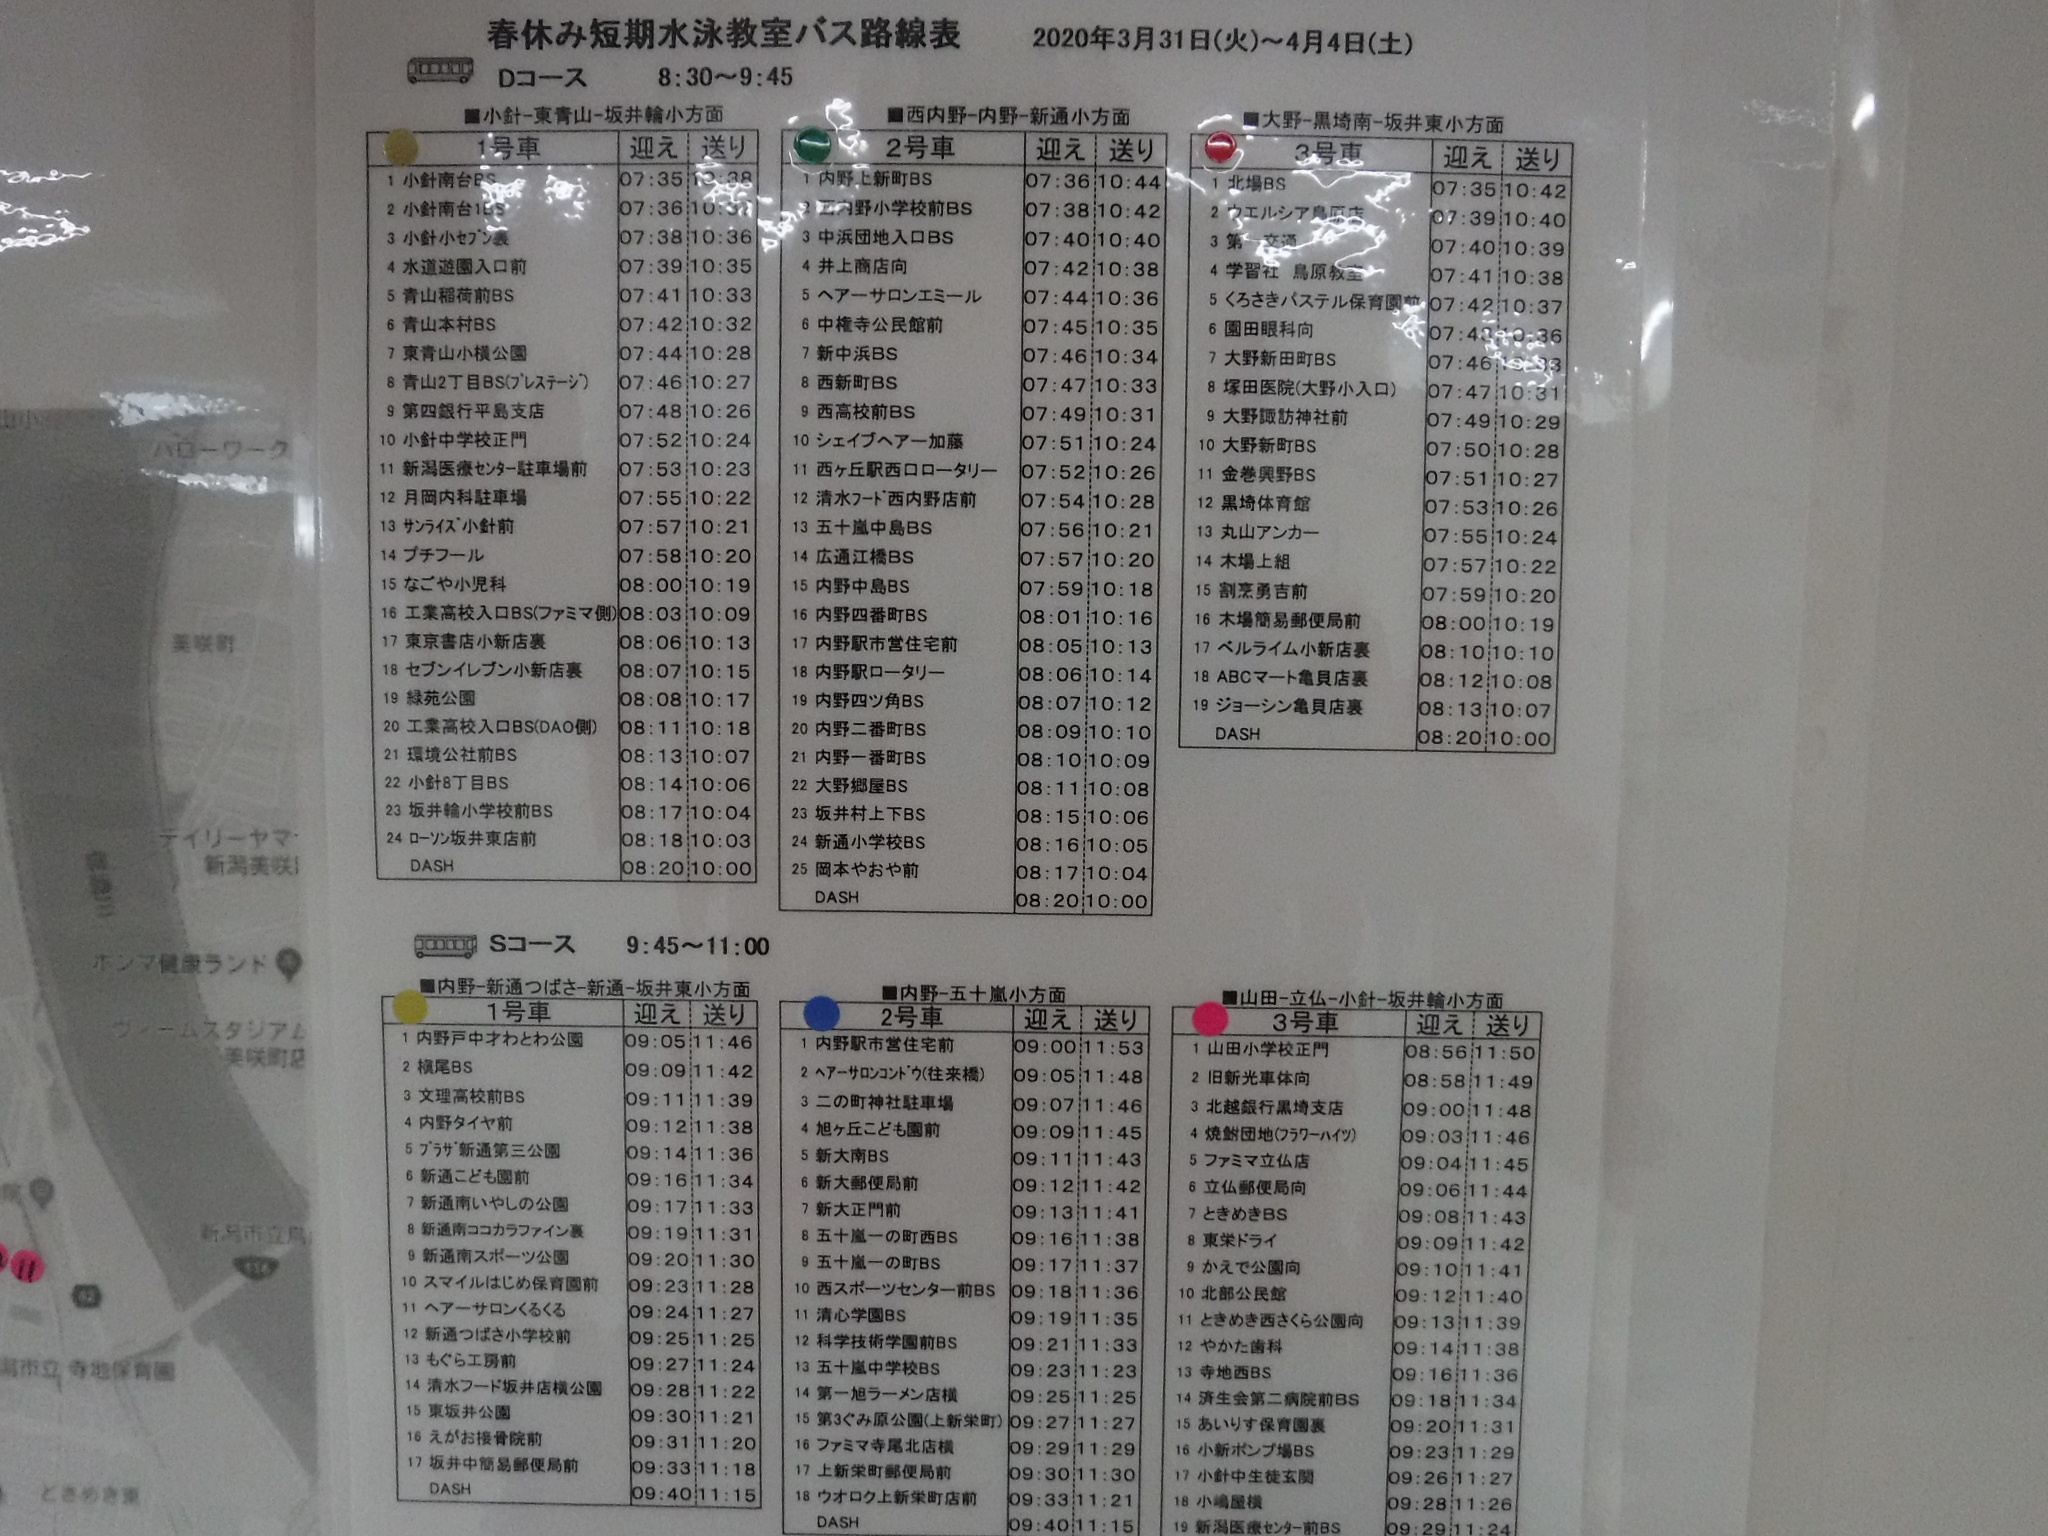 春休み短期水泳教室バス路線表 2020年3月31日(火)～4月4日(土)
Dコース 8:30～9:45
■小針-東青山-坂井輪小方面
1号車 迎え 送り
1 小針南台BS 07:35 10:38
2 小針南台1BS 07:36
3 小針小セブン裏 07:38 10:36
4 水道遊園入口前 07:39 10:35
5 青山稲荷前BS 07:41 10:33
6 青山本村BS 07:42 10:32
7 東青山小横公園 07:44 10:28
8 青山2丁目BS(プレステージ) 07:46 10:27
9 第四銀行平島支店 07:48 10:26
10 小針中学校正門 07:52 10:24
11 新潟医療センター駐車場前 07:53 10:23
12 月岡内科駐車場 07:55 10:22
13 サンライズ小針前 07:57 10:21
14 プチフール 07:58 10:20
15 なごや小児科 08:00 10:19
16 工業高校入口BS(ファミマ側) 08:03 10:09
17 東京書店小新店裏 08:06 10:13
18 セブンイレブン小新店裏 08:07 10:15
19 緑苑公園 08:08 10:17
20 工業高校入口BS(DAO側) 08:11 10:18
21 環境公社前BS 08:13 10:07
22 小針8丁目BS 08:14 10:06
23 坂井輪小学校前BS 08:17 10:04
24 ローソン坂井東店前 08:18 10:03
DASH 08:20 10:00
■西内野-内野-新通小方面
2号車 迎え 送り
1 内野上新町BS 07:36 10:44
2 西内野小学校前BS 07:38 10:42
3 中浜団地入口BS 07:40 10:40
4 井上商店向 07:42 10:38
5 ヘアーサロンエミール 07:44 10:36
6 中権寺公民館前 07:45 10:35
7 新中浜BS 07:46 10:34
8 西新町BS 07:47 10:33
9 西高校前BS 07:49 10:31
10 シェイブヘアー加藤 07:51 10:24
11 西ヶ丘駅西口ロータリー 07:52 10:26
12 清水フード西内野店前 07:54 10:28
13 五十嵐中島BS 07:56 10:21
14 広通江橋BS 07:57 10:20
15 内野中島BS 07:59 10:18
16 内野四番町BS 08:01 10:16
17 内野駅市営住宅前 08:05 10:13
18 内野駅ロータリー 08:06 10:14
19 内野四ツ角BS 08:07 10:12
20 内野二番町BS 08:09 10:10
21 内野一番町BS 08:10 10:09
22 大野郷屋BS 08:11 10:08
23 坂井村上下BS 08:15 10:06
24 新通小学校BS 08:16 10:05
25 岡本やおや前 08:17 10:04
DASH 08:20 10:00
■大野-黒埼南-坂井東小方面
3号車 迎え 送り
1 北場BS 07:35 10:42
2 ウエルシア鳥原店 07:39 10:40
3 第一交通 07:40 10:39
4 学習社 鳥原教室 07:41 10:38
5 くろさきパステル保育園前 07:42 10:37
6 園田眼科向 07:43 10:36
7 大野新田町BS 07:46 10:33
8 塚田医院(大野小入口) 07:47 10:31
9 大野諏訪神社前 07:49 10:29
10 大野新町BS 07:50 10:28
11 金巻興野BS 07:51 10:27
12 黒埼体育館 07:53 10:26
13 丸山アンカー 07:55 10:24
14 木場上組 07:57 10:22
15 割烹勇吉前 07:59 10:20
16 木場簡易郵便局前 08:00 10:19
17 ベルライム小新店裏 08:10 10:10
18 ABCマート亀貝店裏 08:12 10:08
19 ジョーシン亀貝店裏 08:13 10:07
DASH 08:20 10:00
Sコース 9:45～11:00
■内野-新通つばさ-新通-坂井東小方面
1号車 迎え 送り
1 内野戸中才わとわ公園 09:05 11:46
2 槇尾BS 09:09 11:42
3 文理高校前BS 09:11 11:39
4 内野タイヤ前 09:12 11:38
5 プラザ新通第三公園 09:14 11:36
6 新通こども園前 09:16 11:34
7 新通南いやしの公園 09:17 11:33
8 新通南ココカラファイン裏 09:19 11:31
9 新通南スポーツ公園 09:20 11:30
10 スマイルはじめ保育園前 09:23 11:28
11 ヘアーサロンくるくる 09:24 11:27
12 新通つばさ小学校前 09:25 11:25
13 もぐら工房前 09:27 11:24
14 清水フード坂井店横公園 09:28 11:22
15 東坂井公園 09:30 11:21
16 えがお接骨院前 09:31 11:20
17 坂井中簡易郵便局前 09:33 11:18
DASH 09:40 11:15
■内野-五十嵐小方面
2号車 迎え 送り
1 内野駅市営住宅前 09:00 11:53
2 ヘアーサロンコンドウ(往来橋) 09:05 11:48
3 二の町神社駐車場 09:07 11:46
4 旭ヶ丘こども園前 09:09 11:45
5 新大南BS 09:11 11:43
6 新大郵便局前 09:12 11:42
7 新大正門前 09:13 11:41
8 五十嵐一の町西BS 09:16 11:38
9 五十嵐一の町BS 09:17 11:37
10 西スポーツセンター前BS 09:18 11:36
11 清心学園BS 09:19 11:35
12 科学技術学園前BS 09:21 11:33
13 五十嵐中学校BS 09:23 11:23
14 第一旭ラーメン店横 09:25 11:25
15 第3ぐみ原公園(上新栄町) 09:27 11:27
16 ファミマ寺尾北店横 09:29 11:29
17 上新栄町郵便局前 09:30 11:30
18 ウオロク上新栄町店前 09:33 11:21
DASH 09:40 11:15
■山田-立仏-小針-坂井輪小方面
3号車 迎え 送り
1 山田小学校正門 08:56 11:50
2 旧新光車体向 08:58 11:49
3 北越銀行黒埼支店 09:00 11:48
4 焼鮒団地(フラワーハイツ) 09:03 11:46
5 ファミマ立仏店 09:04 11:45
6 立仏郵便局向 09:06 11:44
7 ときめきBS 09:08 11:43
8 東栄ドライ 09:09 11:42
9 かえで公園向 09:10 11:41
10 北部公民館 09:12 11:40
11 ときめき西さくら公園向 09:13 11:39
12 やかた歯科 09:14 11:38
13 寺地西BS 09:16 11:36
14 済生会第二病院前BS 09:18 11:34
15 あいりす保育園裏 09:20 11:31
16 小新ポンプ場BS 09:23 11:29
17 小針中生徒玄関 09:26 11:27
18 小嶋屋横 09:28 11:26
19 新潟医療センター前BS 09:29 11:24
ハローワーク
美咲町
デイリーヤマ
新潟美咲
ホンマ健康ランド
ヴィームスタジアム
美咲町店
新潟市立鳥
潟市立 寺地保育園
ときめき東
11